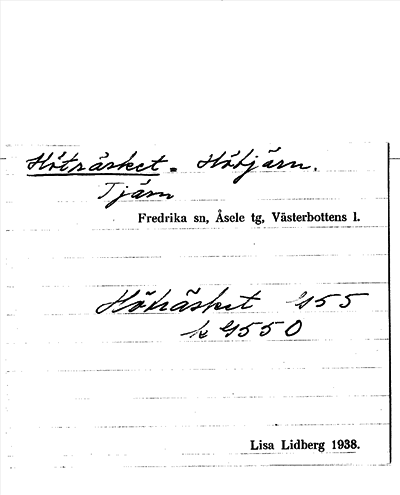 Höträsket. Hötjärn.
Tjärn
Fredrika sn, Åsele tg, Västerbottens l.
Höträsket G55
k G550
Lisa Lidberg 1938.